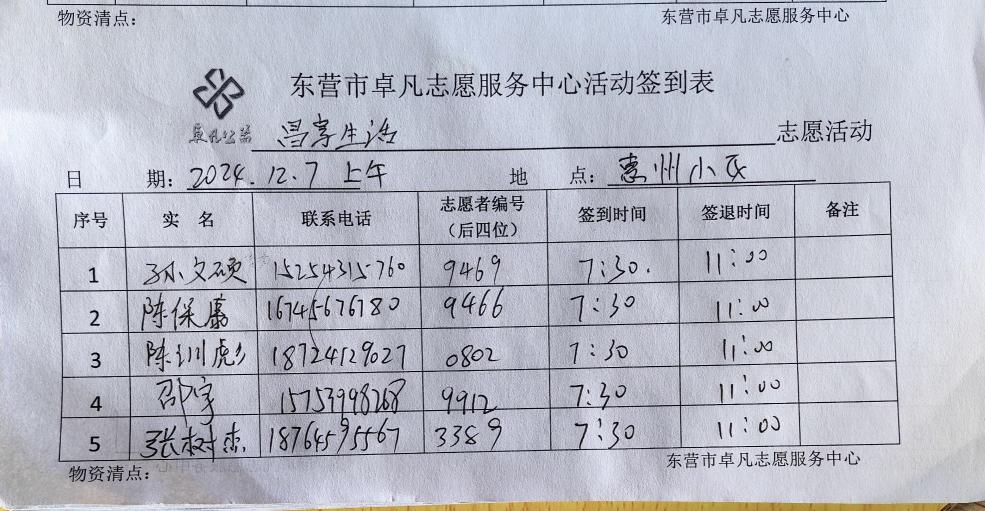 物资清点： 东营市卓凡志愿服务中心
东营市卓凡志愿服务中心活动签到表
卓凡公益 昌享生活 志愿活动
日 期：2024.12.7 上午 地 点：惠州小区
序号 实 名 联系电话 志愿者编号（后四位） 签到时间 签退时间 备注
1 孙文硕 15254315760 9469 7:30. 11:00
2 陈保庸 16745676780 9466 7:30 11:00
3 陈训彪 18724129027 0802 7:30 11:00
4 邵宇 15753998268 9912 7:30 11:00
5 张树杰 18764595567 3389 7:30 11:00
物资清点： 东营市卓凡志愿服务中心